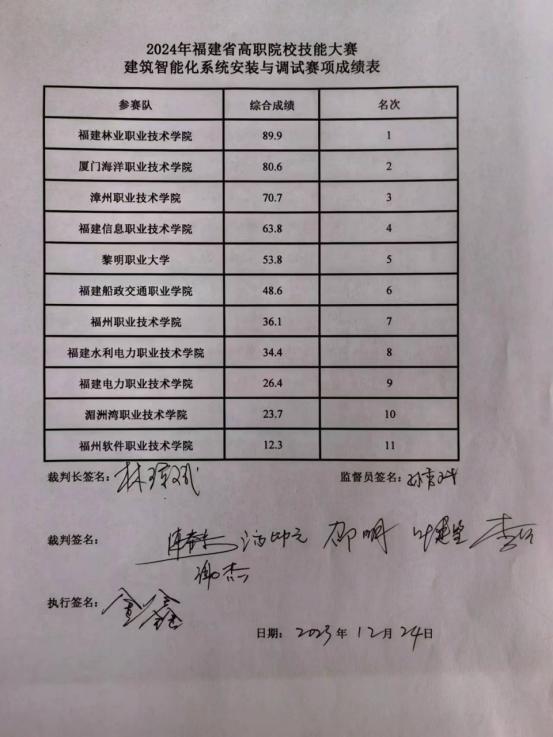 2024年福建省高职院校技能大赛
建筑智能化系统安装与调试赛项成绩表
参赛队 综合成绩 名次
福建林业职业技术学院 89.9 1
厦门海洋职业技术学院 80.6 2
漳州职业技术学院 70.7 3
福建信息职业技术学院 63.8 4
黎明职业大学 53.8 5
福建船政交通职业学院 48.6 6
福州职业技术学院 36.1 7
福建水利电力职业技术学院 34.4 8
福建电力职业技术学院 26.4 9
湄洲湾职业技术学院 23.7 10
福州软件职业技术学院 12.3 11
裁判长签名： 监督员签名：
裁判签名： 邵明
谢杰
执行签名：金鑫
日期：2023年12月24日